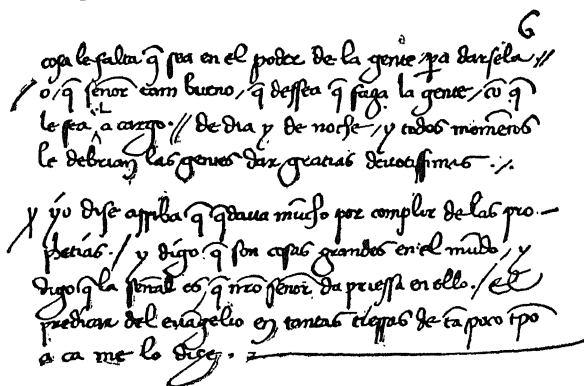 6
cosa le falta q̃ sea en el poder de la gente / pa darsela //
/ o, q̃ señor tam bueno, q̃ dessea q̃ faga la gente, cõ q̃
le sea el a cargo. // de dia y de noche, y todos momẽtos
le debrian las gentes dar gratias devotissimas . /.
y yo dise arriba q̃ q̃dava mũcho por complir de las pro-
/ phetias. / y digo q̃ son cosas grandes en el mũdo, y
digo q̃ la señal es, q̃ nr̃o señor da priessa en ello. / el
predicar del evãgelio en tantas tierras de tã poco tp̃o
a ca me lo dice .